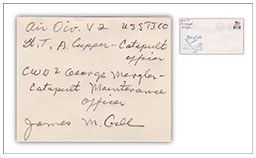 Air Div. V2 USS TICO
Lt. T. A. Cupper - Catapult
officer
CWO2 George Mergler -
Catapult Maintenance
Officer
James M. Gill